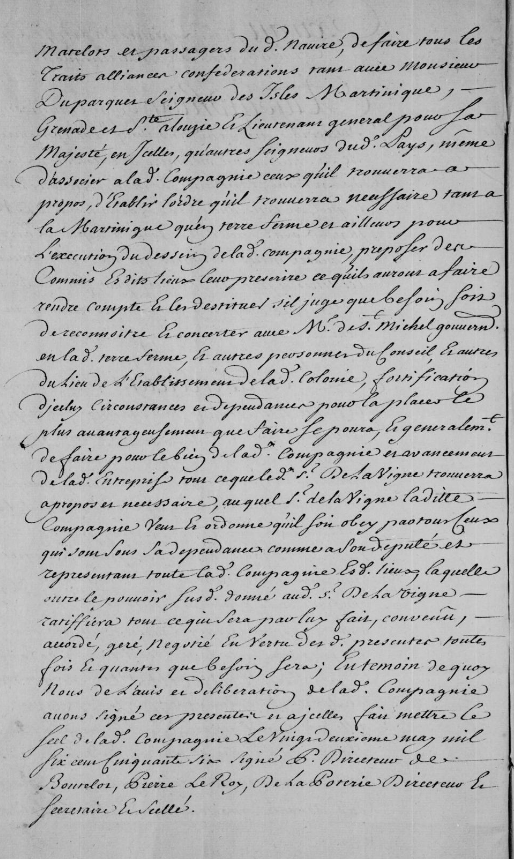 Matelots et passagers du d. Navire, de faire tous les
Traits alliances confederations tant avec Monsieur
Duparquet Seigneur des Isles Martinique,
Grenade et Ste. alouzie et Lieutenant general pour sa
Majesté, en Jcelles, qu'autres Seigneurs dud. Pays, même
d'associer a lad. Compagnie ceux qu'il trouvera a
propos, d'Etablir l'ordre qu'il trouvera necessaire tant a
la Martinique qu'en terre ferme et ailleurs pour
L'execution du dessein de lad. compagnie, preposer des
Commis Esdits lieux leur prescrire ce qu'ils auront a faire
rendre compte Et les destituer s'il juge que besoin soit
de reconnoitre Et concerter avec Mr. de St. Michel gouvernr.
en lad. terre ferme, Et autres personnes du Conseil, Et autres
du Lieu de L'Etablissement de lad. Colonie, fortification
d'jceluy Circonstances et dependances pour la placer le
plus avantageusement que faire se poura, Et generalemt.
de faire pour le bien de lad. Compagnie et avancement
de lad. Entreprise tout ce que led. Sr. De La Vigne trouvera
apropos et necessaire, auquel Sr. de la Vigne ladite
Compagnie Veut Et ordonne qu'il soit obey par tous Ceux
qui sont sous sa dependance comme a son deputé et
representant toute lad. Compagnie Esd. lieux, laquelle
outre le pouvoir susd. donné aud. Sr. De La Vigne
ratiffiera tout ce qui sera par luy fait, convenu,
accordé, geré, Negotié En Vertu desd. presentes toutes
fois Et quantes que besoin sera; En temoin de quoy
Nous de L'avis et deliberation de lad. Compagnie
avons signé ces presentes et ajcelles fait mettre le
scel de lad. Compagnie Le Vingt deuxieme may mil
six cent Cinquante six signé P. Directeur de
Bontelot, Pierre Le Roy, De La Poterie Directeur Et
Secretaire Et Scellé.